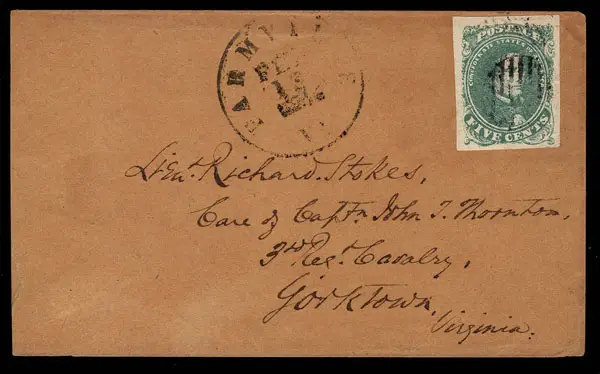 FARMVILLE
FEB
VA
POSTAGE
CONFEDERATE STATES
FIVE CENTS
Lieut. Richard Stokes,
Care of Capt. John T. Thornton,
3rd Regt. Cavalry,
Yorktown,
Virginia.